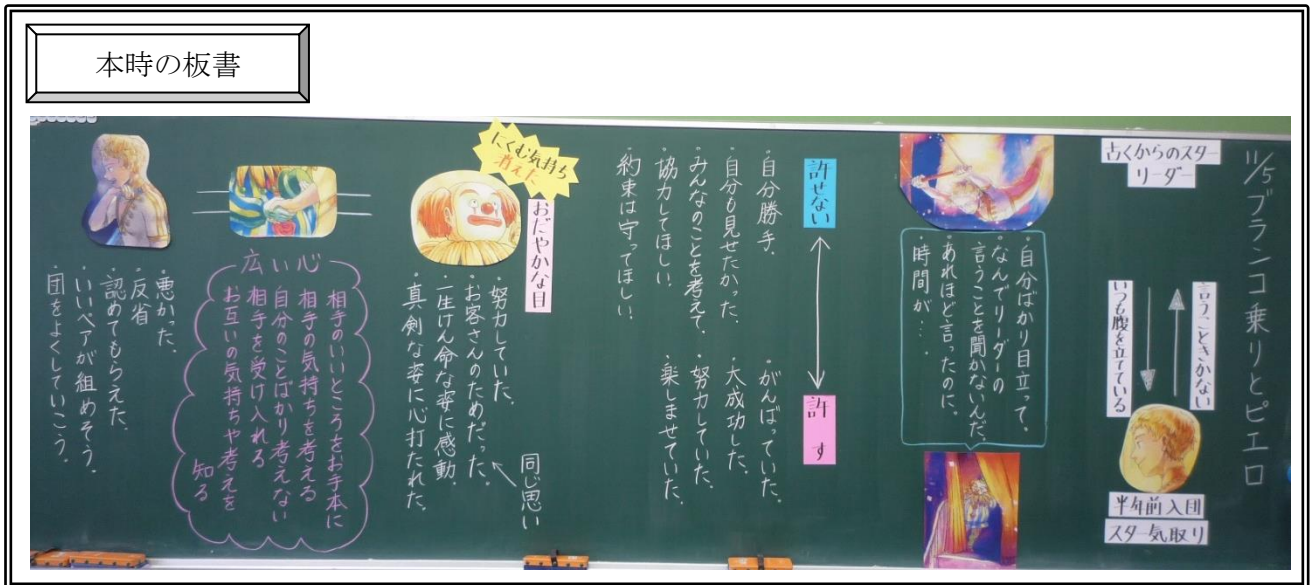 本時の板書
11/5 ブランコ乗りとピエロ
古くからのスター
リーダー
言うこときかない
いつも腹を立てている
半年前入団
スター気取り
・自分ばかり目立って。
・なんでリーダーの
言うことを聞かないんだ。
・あれほど言ったのに。
・時間が…
許せない
許す
・自分勝手。
・自分も見せたかった。
・みんなのことを考えて。
・協力してほしい。
・約束は守ってほしい。
・がんばっていた。
・大成功した。
・努力していた。
・楽しませていた。
にくむ気持ち
消えた
おだやかな目
・努力していた。
・お客さんのためだった。
・一生けん命な姿に感動。
・真剣な姿に心打たれた。
同じ思い
広い心
相手のいいところをお手本に
相手の気持ちを考える
自分のことばかり考えない
相手を受け入れる
お互いの気持ちや考えを
知る
・悪かった。
・反省
・認めてもらえた。
・いいペアが組めそう。
・団をよくしていこう。